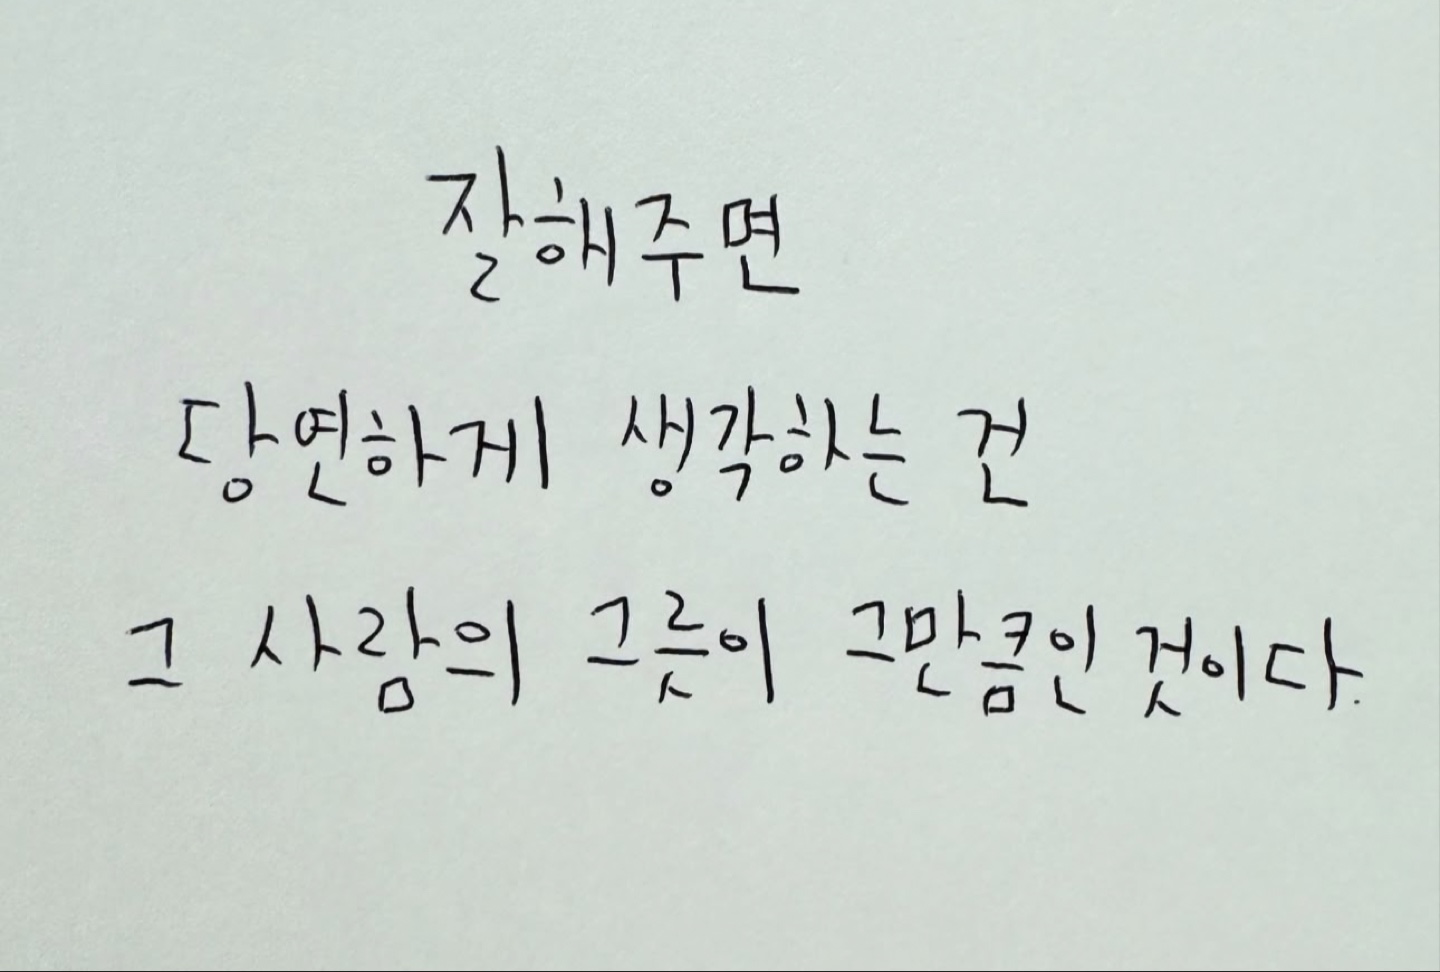 잘해주면
당연하게 생각하는 건
그 사람의 그릇이 그만큼인 것이다.